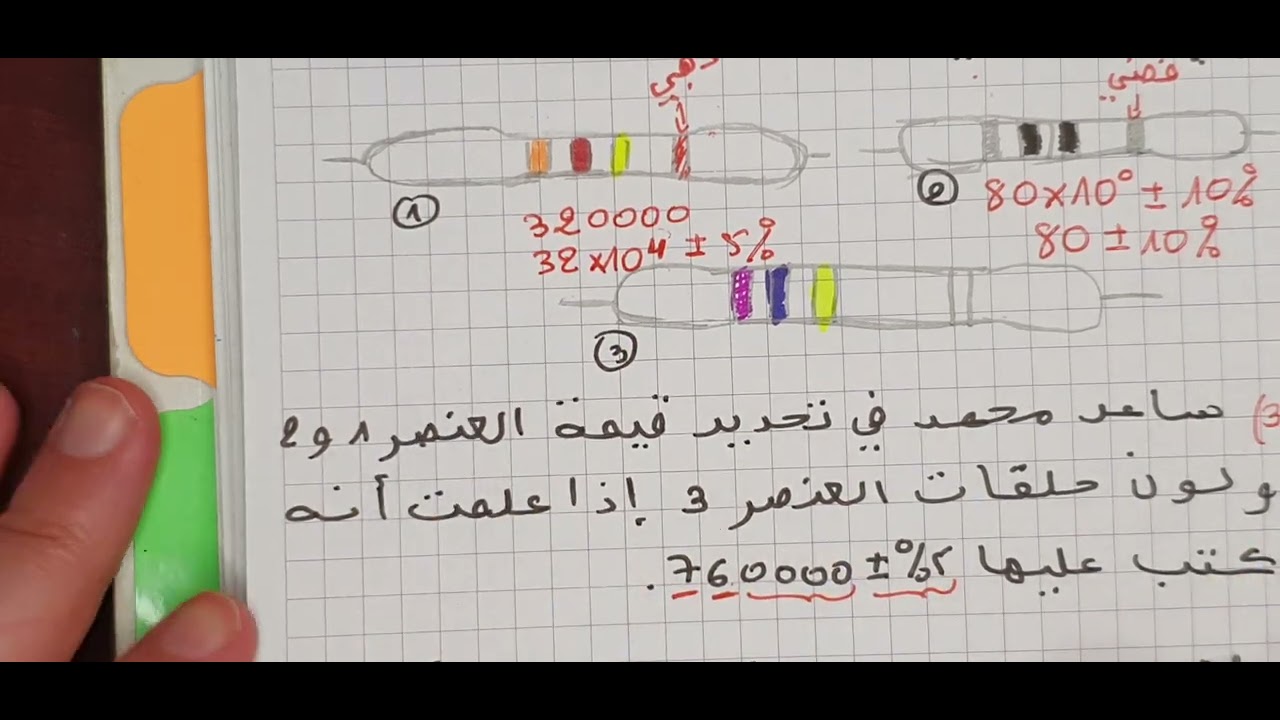 فضي
① ②
320000 80×10⁰ ± 10%
32×10⁴ ± 5% 80 ± 10%
③
3) ساعد محمد في تحديد قيمة العنصر 1 و 2
ولون حلقات العنصر 3 إذا علمت أنه
كتب عليها 760000 ± %5.